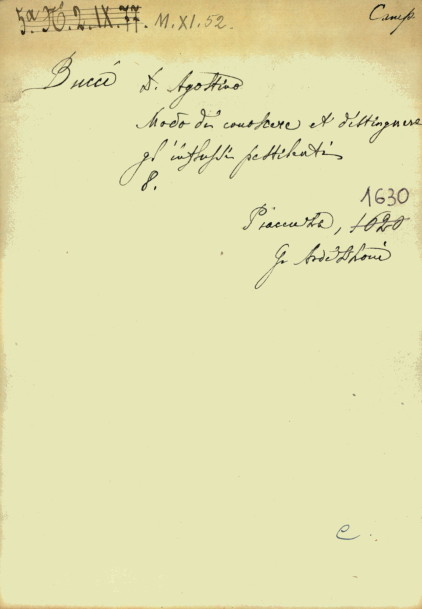 5ª N. 2. IX. 77. M. XI. 52.
Camp
Bucci D. Agostino
Modo di conoscere et distinguere
gl'influssi pestilenti
8.
1630
Piacenza, 1620
G. Ardizzoni
C